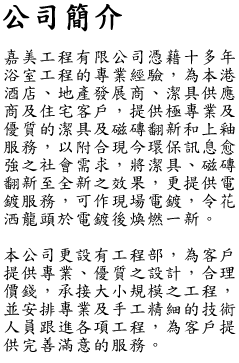 公司簡介
嘉美工程有限公司憑藉十多年
浴室工程的專業經驗，為本港
酒店、地產發展商、潔具供應
商及住宅客戶，提供極專業及
優質的潔具及磁磚翻新和上釉
服務，以附合現今環保訊息愈
強之社會需求，將潔具、磁磚
翻新至全新之效果，更提供電
鍍服務，可作現場電鍍，令花
洒龍頭於電鍍後煥燃一新。
本公司更設有工程部，為客戶
提供專業、優質之設計，合理
價錢，承接大小規模之工程，
並安排專業及手工精細的技術
人員跟進各項工程，為客戶提
供完善滿意的服務。